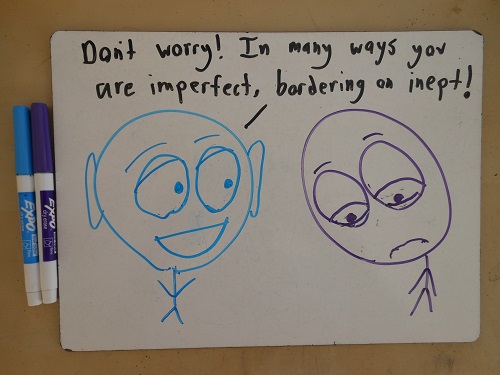 Don't worry! In many ways you
are imperfect, bordering on inept!
EXPO
EXPO